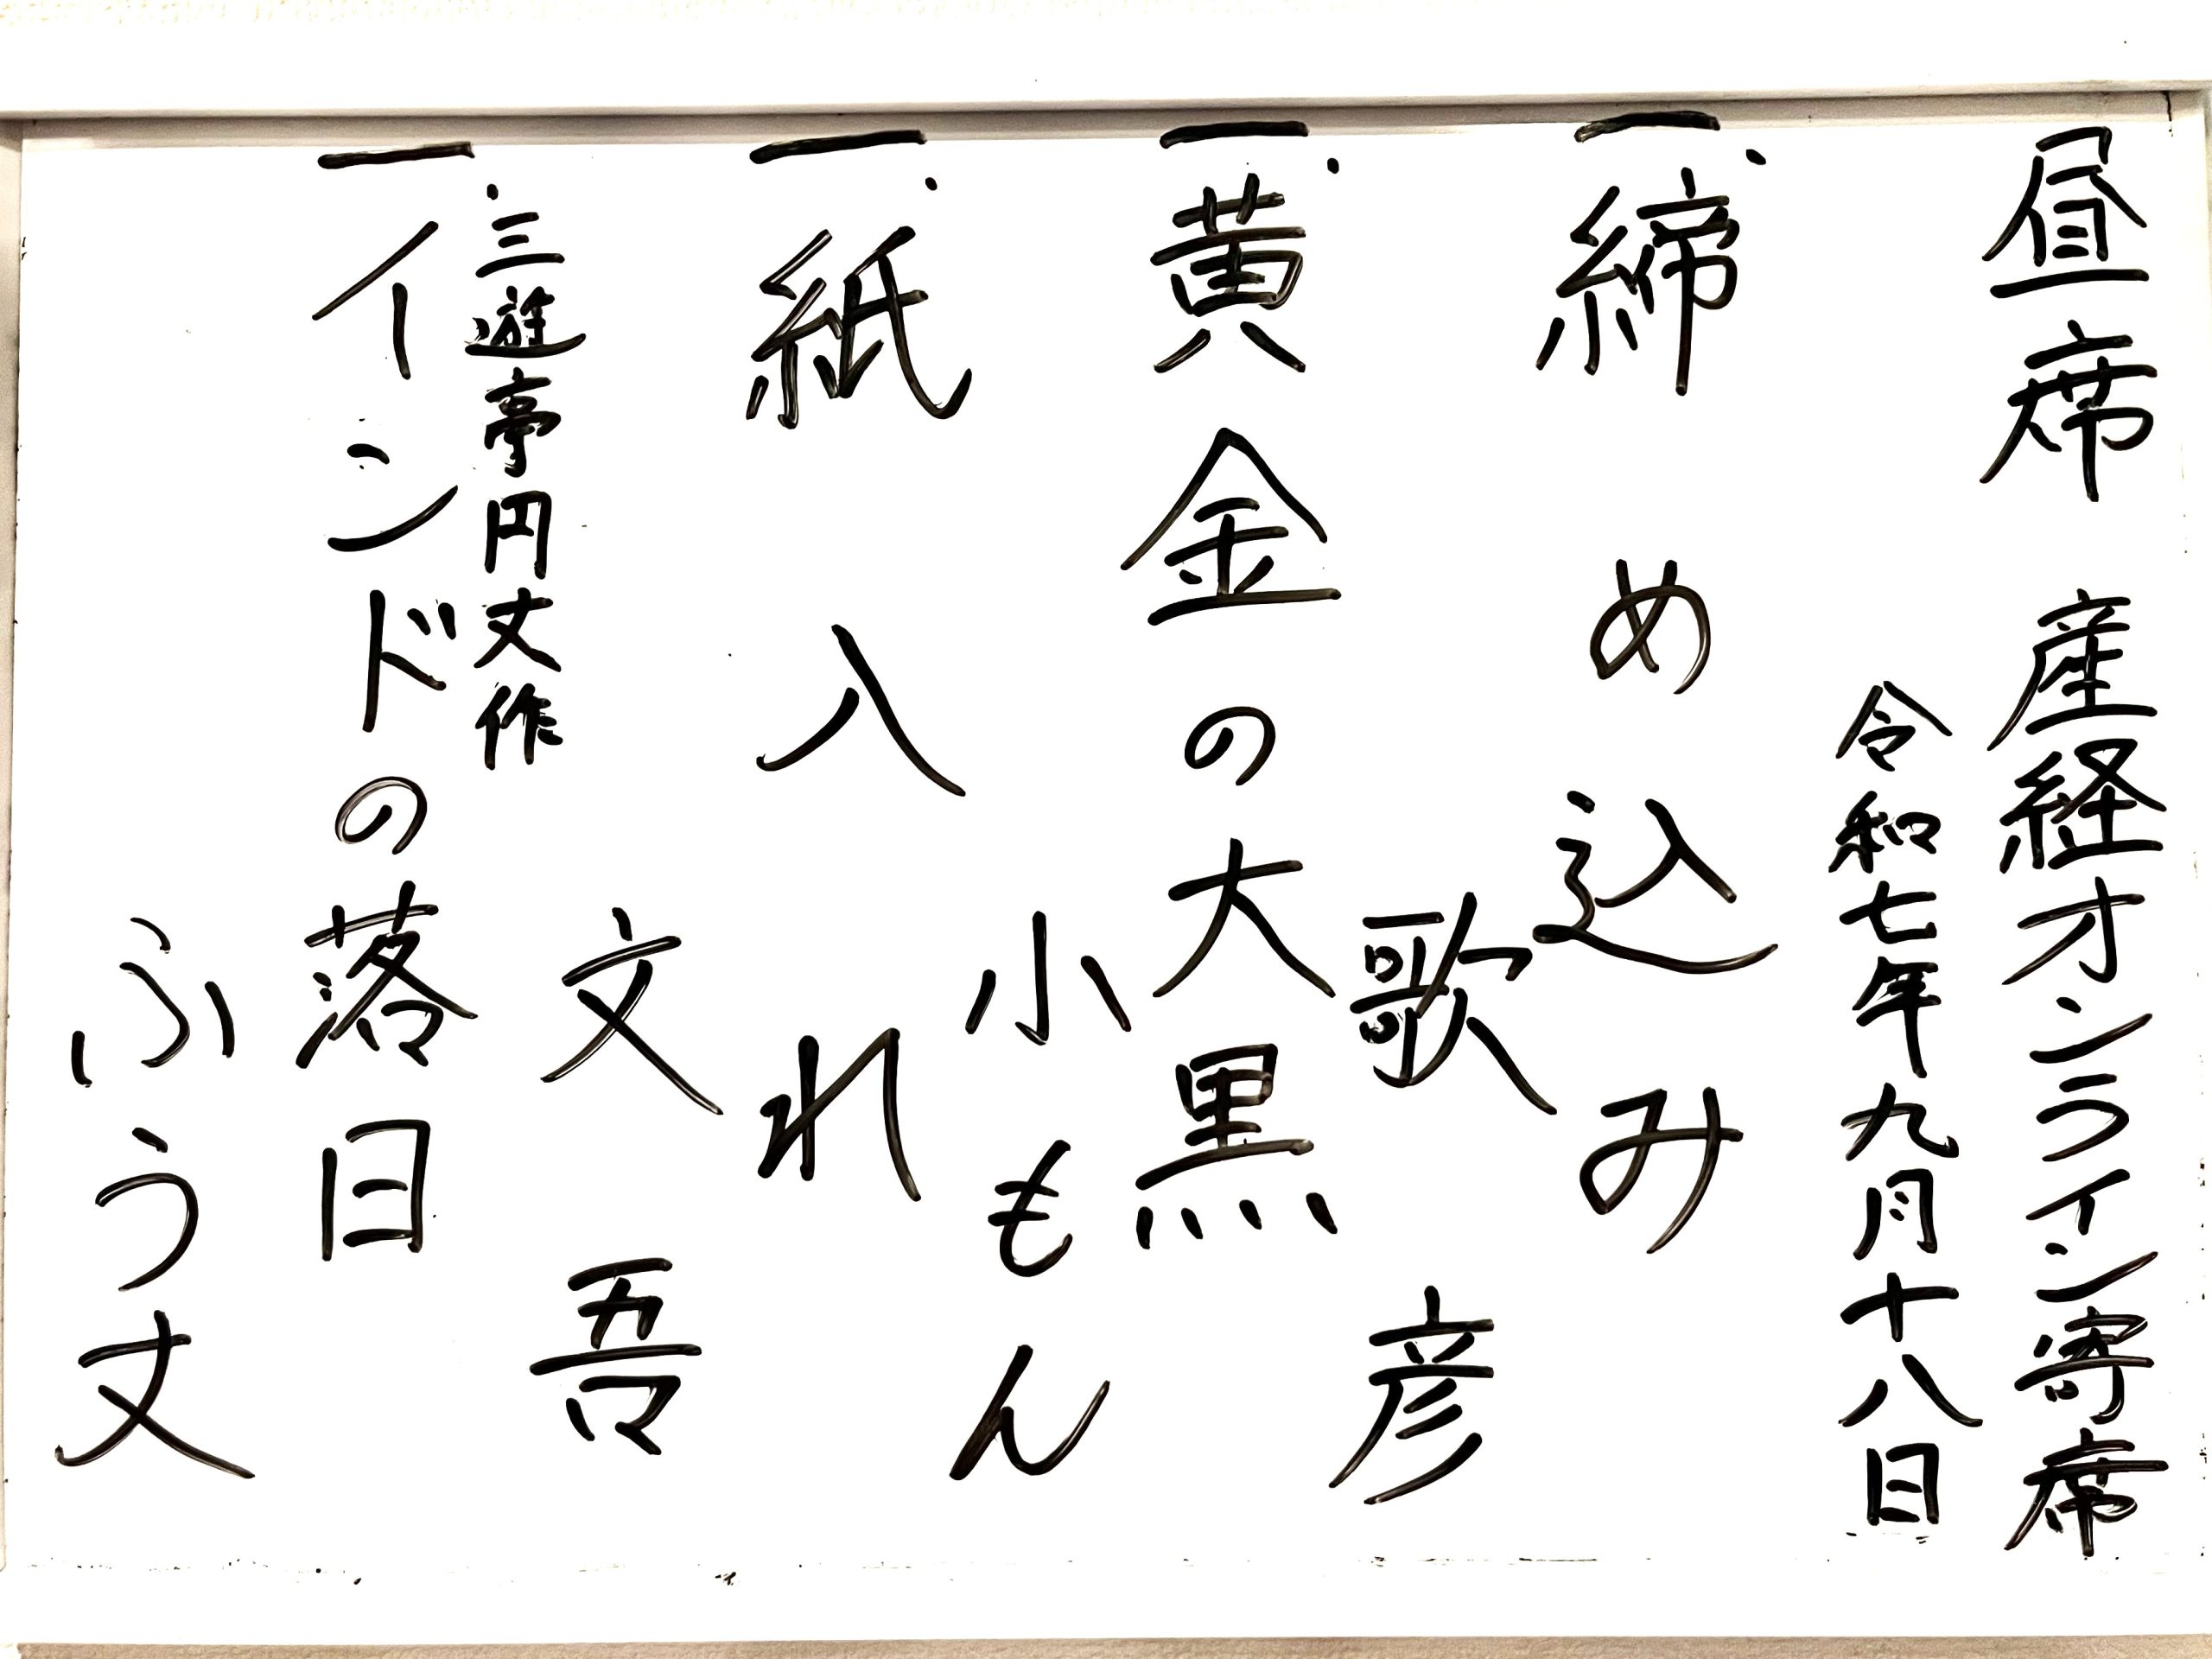 昼席 産経オンライン寄席
令和七年九月十八日
一. 締め込み
歌彦
一. 黄金の大黒
小もん
一. 紙入れ
文吾
一. 三遊亭円丈作
インドの落日
ふう丈